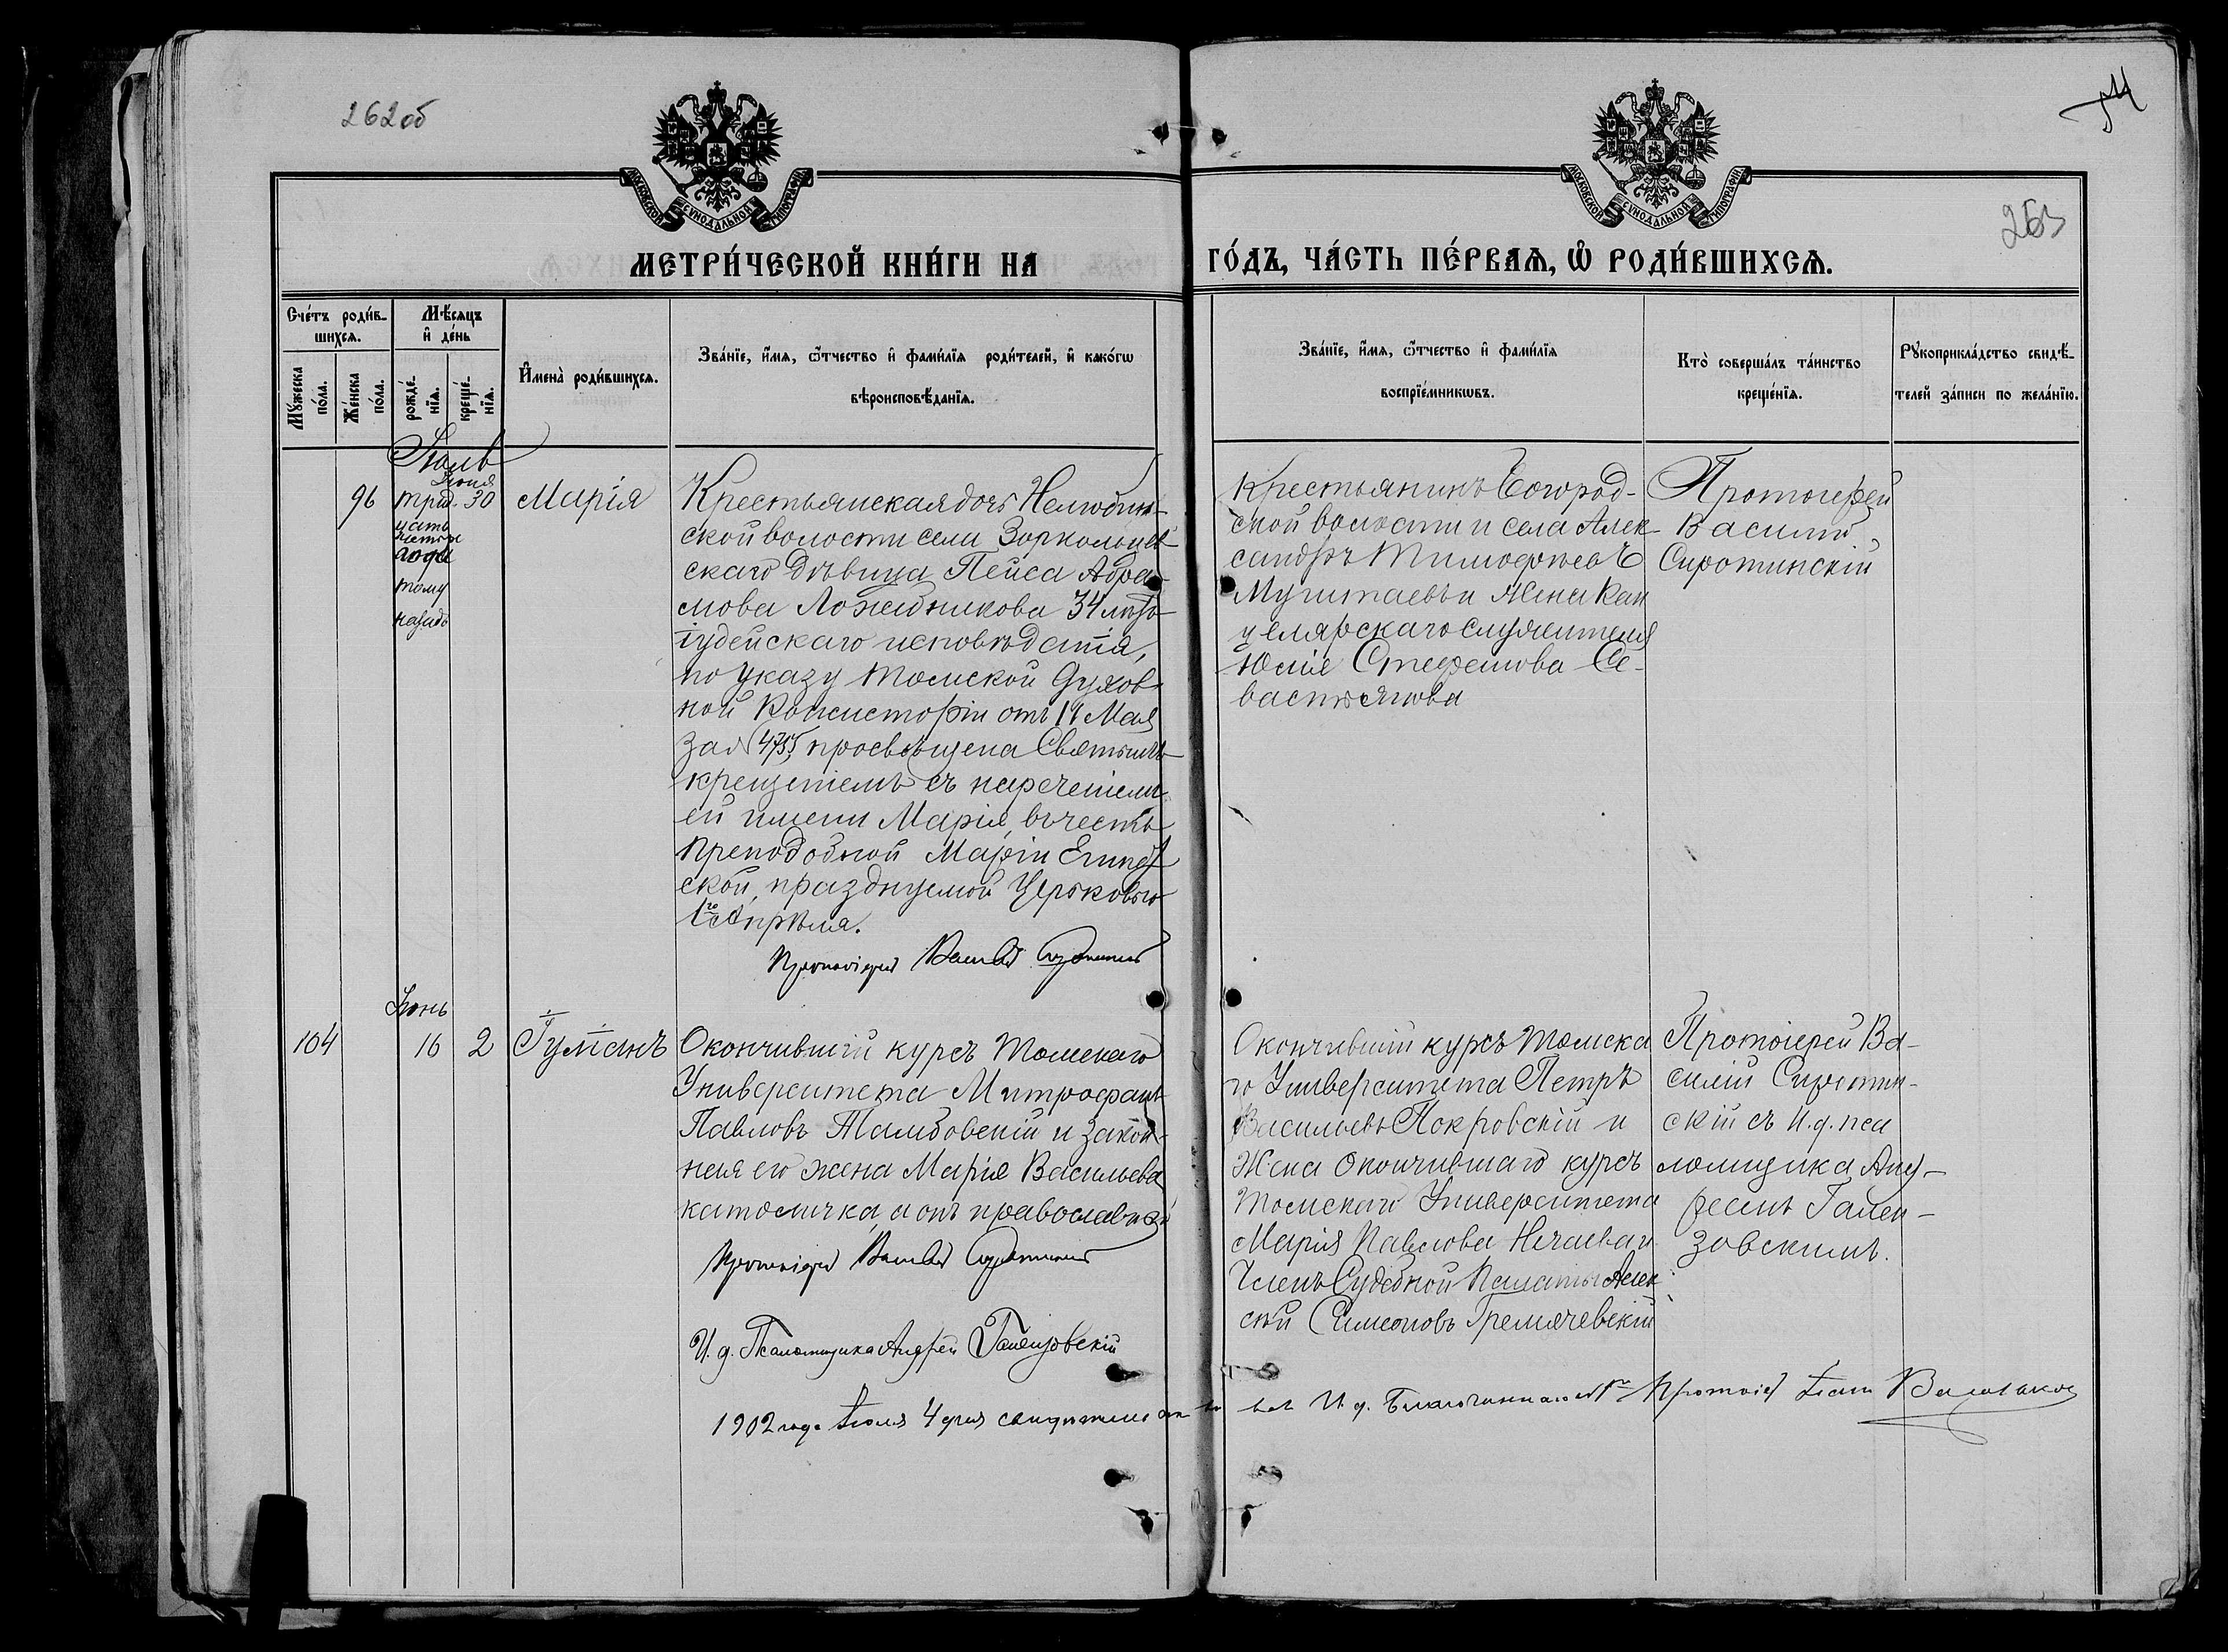 262об
263
МОСКОВСКОЙ СУНОДАЛЬНОЙ ТИПОГРАФІИ
МОСКОВСКОЙ СУНОДАЛЬНОЙ ТИПОГРАФІИ
МЕТРИ́ЧЕСКОЙ КНИ́ГИ НА
ГО́ДЪ, ЧА́СТЬ ПЕ́РВАѦ, Ѡ҆ РОДИ́ВШИХСѦ.
Сче́тъ роди́в-
шихсѧ.
Му́жеска по́ла.
Же́нска по́ла.
Мѣ́сѧцъ и҆ де́нь
рожде́-нїѧ.
креще́-нїѧ.
И҆мена̀ роди́вшихсѧ.
Зва́нїе, и҆́мѧ, ѻ҆́тчество и҆ фами́лїѧ роди́телей, и҆ како́гѡ
вѣроисповѣ́данїѧ.
Зва́нїе, и҆́мѧ, ѻ҆́тчество и҆ фами́лїѧ
воспрїе́мникѡвъ.
Кто̀ соверша́лъ та́инство
креще́нїѧ.
Рꙋкоприкла́дство свидѣ́-
телей за́писи по жела́нїю.
Іюня
96
трид-
цать
четыре
года
тому
назадъ
30
Марія
Крестьянская дочь Нелюбин-
ской волости села Зоркольцев-
скаго дѣвица Пейса Абра-
мова Ложейникова 34 лѣтъ
іудейскаго исповѣданія,
по указу Томской Духов-
ной Консисторіи отъ 14 Мая
за № 4735, просвѣщена Святымъ
крещеніемъ съ нареченіемъ
ей имени Марія, въ честь
преподобной Маріи Египет-
ской, празднуемой Церковью
1го Апрѣля.
Протоіерей Василій Сиротинскій
Крестьянинъ Богород-
ской волости и села Алек-
сандръ Тимофѣевъ
и жена Кан
целярскаго служителя
Юлія Стефанова Се-
вастьянова
Протоіерей
Василій
Сиротинскій
Іюнь
104
16
2
Іуліанъ
Окончившій курсъ Томскаго
Университета Митрофанъ
Павловъ Тамбовскій и закон-
ная его жена Марія Васильева
католичка, а онъ православный
Протоіерей Василій Сиротинскій
И. д. Псаломщика Андрей Галензовскій
Окончившій курсъ Томска
го Университета Петръ
Васильевъ Покровскій и
Жена Окончившаго курсъ
Томскаго Университета
Марія Павлова Нечаева и
Членъ Судебной Палаты Алек-
сѣй Симеоновъ Гремячевскій
Протоіерей Ва-
силій Сиротин-
скій съ И. д. пса
ломщика Анд-
реемъ Гален-
зовскимъ.
1902 года Іюля 4 дня И. д. Благочиннаго № 1го Протоіерей